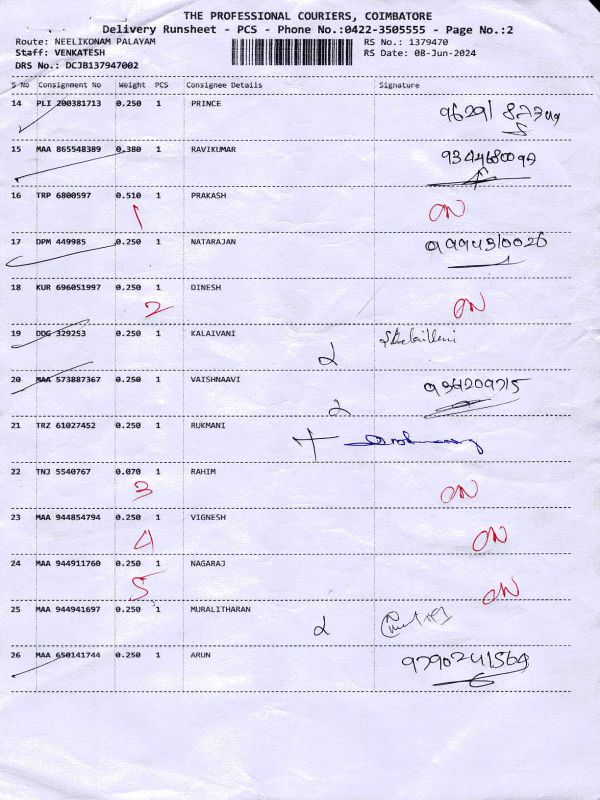 THE PROFESSIONAL COURIERS, COIMBATORE
Delivery Runsheet - PCS - Phone No.:0422-3505555 - Page No.:2
Route: NEELIKONAM PALAYAM RS No.: 1379470
Staff: VENKATESH RS Date: 08-Jun-2024
DRS No.: DCJB137947002
S No Consignment No Weight PCS Consignee Details Signature
14 PLI 200381713 0.250 1 PRINCE
15 MAA 865548389 0.380 1 RAVIKUMAR
16 TRP 6800597 0.510 1 PRAKASH ON
1
17 DPM 449985 0.250 1 NATARAJAN
18 KUR 696051997 0.250 1 DINESH ON
2
19 DDG 329253 0.250 1 KALAIVANI
20 MAA 573887367 0.250 1 VAISHNAAVI
21 TRZ 61027452 0.250 1 RUKMANI
22 TNJ 5540767 0.070 1 RAHIM ON
3
23 MAA 944854794 0.250 1 VIGNESH ON
4
24 MAA 944911760 0.250 1 NAGARAJ ON
5
25 MAA 944941697 0.250 1 MURALITHARAN
26 MAA 650141744 0.250 1 ARUN 9790241564